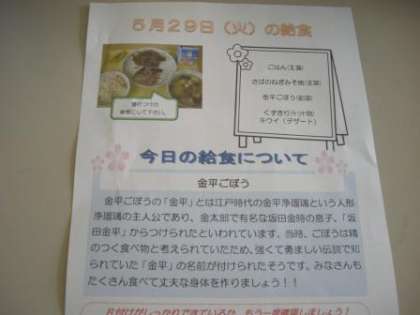 5月29日(火)の給食
ごはん(主食)
さばのねぎみそ焼(主菜)
金平ごぼう(副菜)
くずきり汁(汁物)
キウイ(デザート)
盛りつけの
参考にして下さい。
今日の給食について
金平ごぼう
金平ごぼうの「金平」とは江戸時代の金平浄瑠璃という人形
浄瑠璃の主人公であり、金太郎で有名な坂田金時の息子、「坂
田金平」からつけられたといわれています。当時、ごぼうは精
のつく食べ物と考えられていたため、強くて勇ましい伝説で知
られていた「金平」の名前が付けられたそうです。みなさんも
たくさん食べて丈夫な身体を作りましょう!!
片付けがしっかりできているか、もう一度確認しましょう!